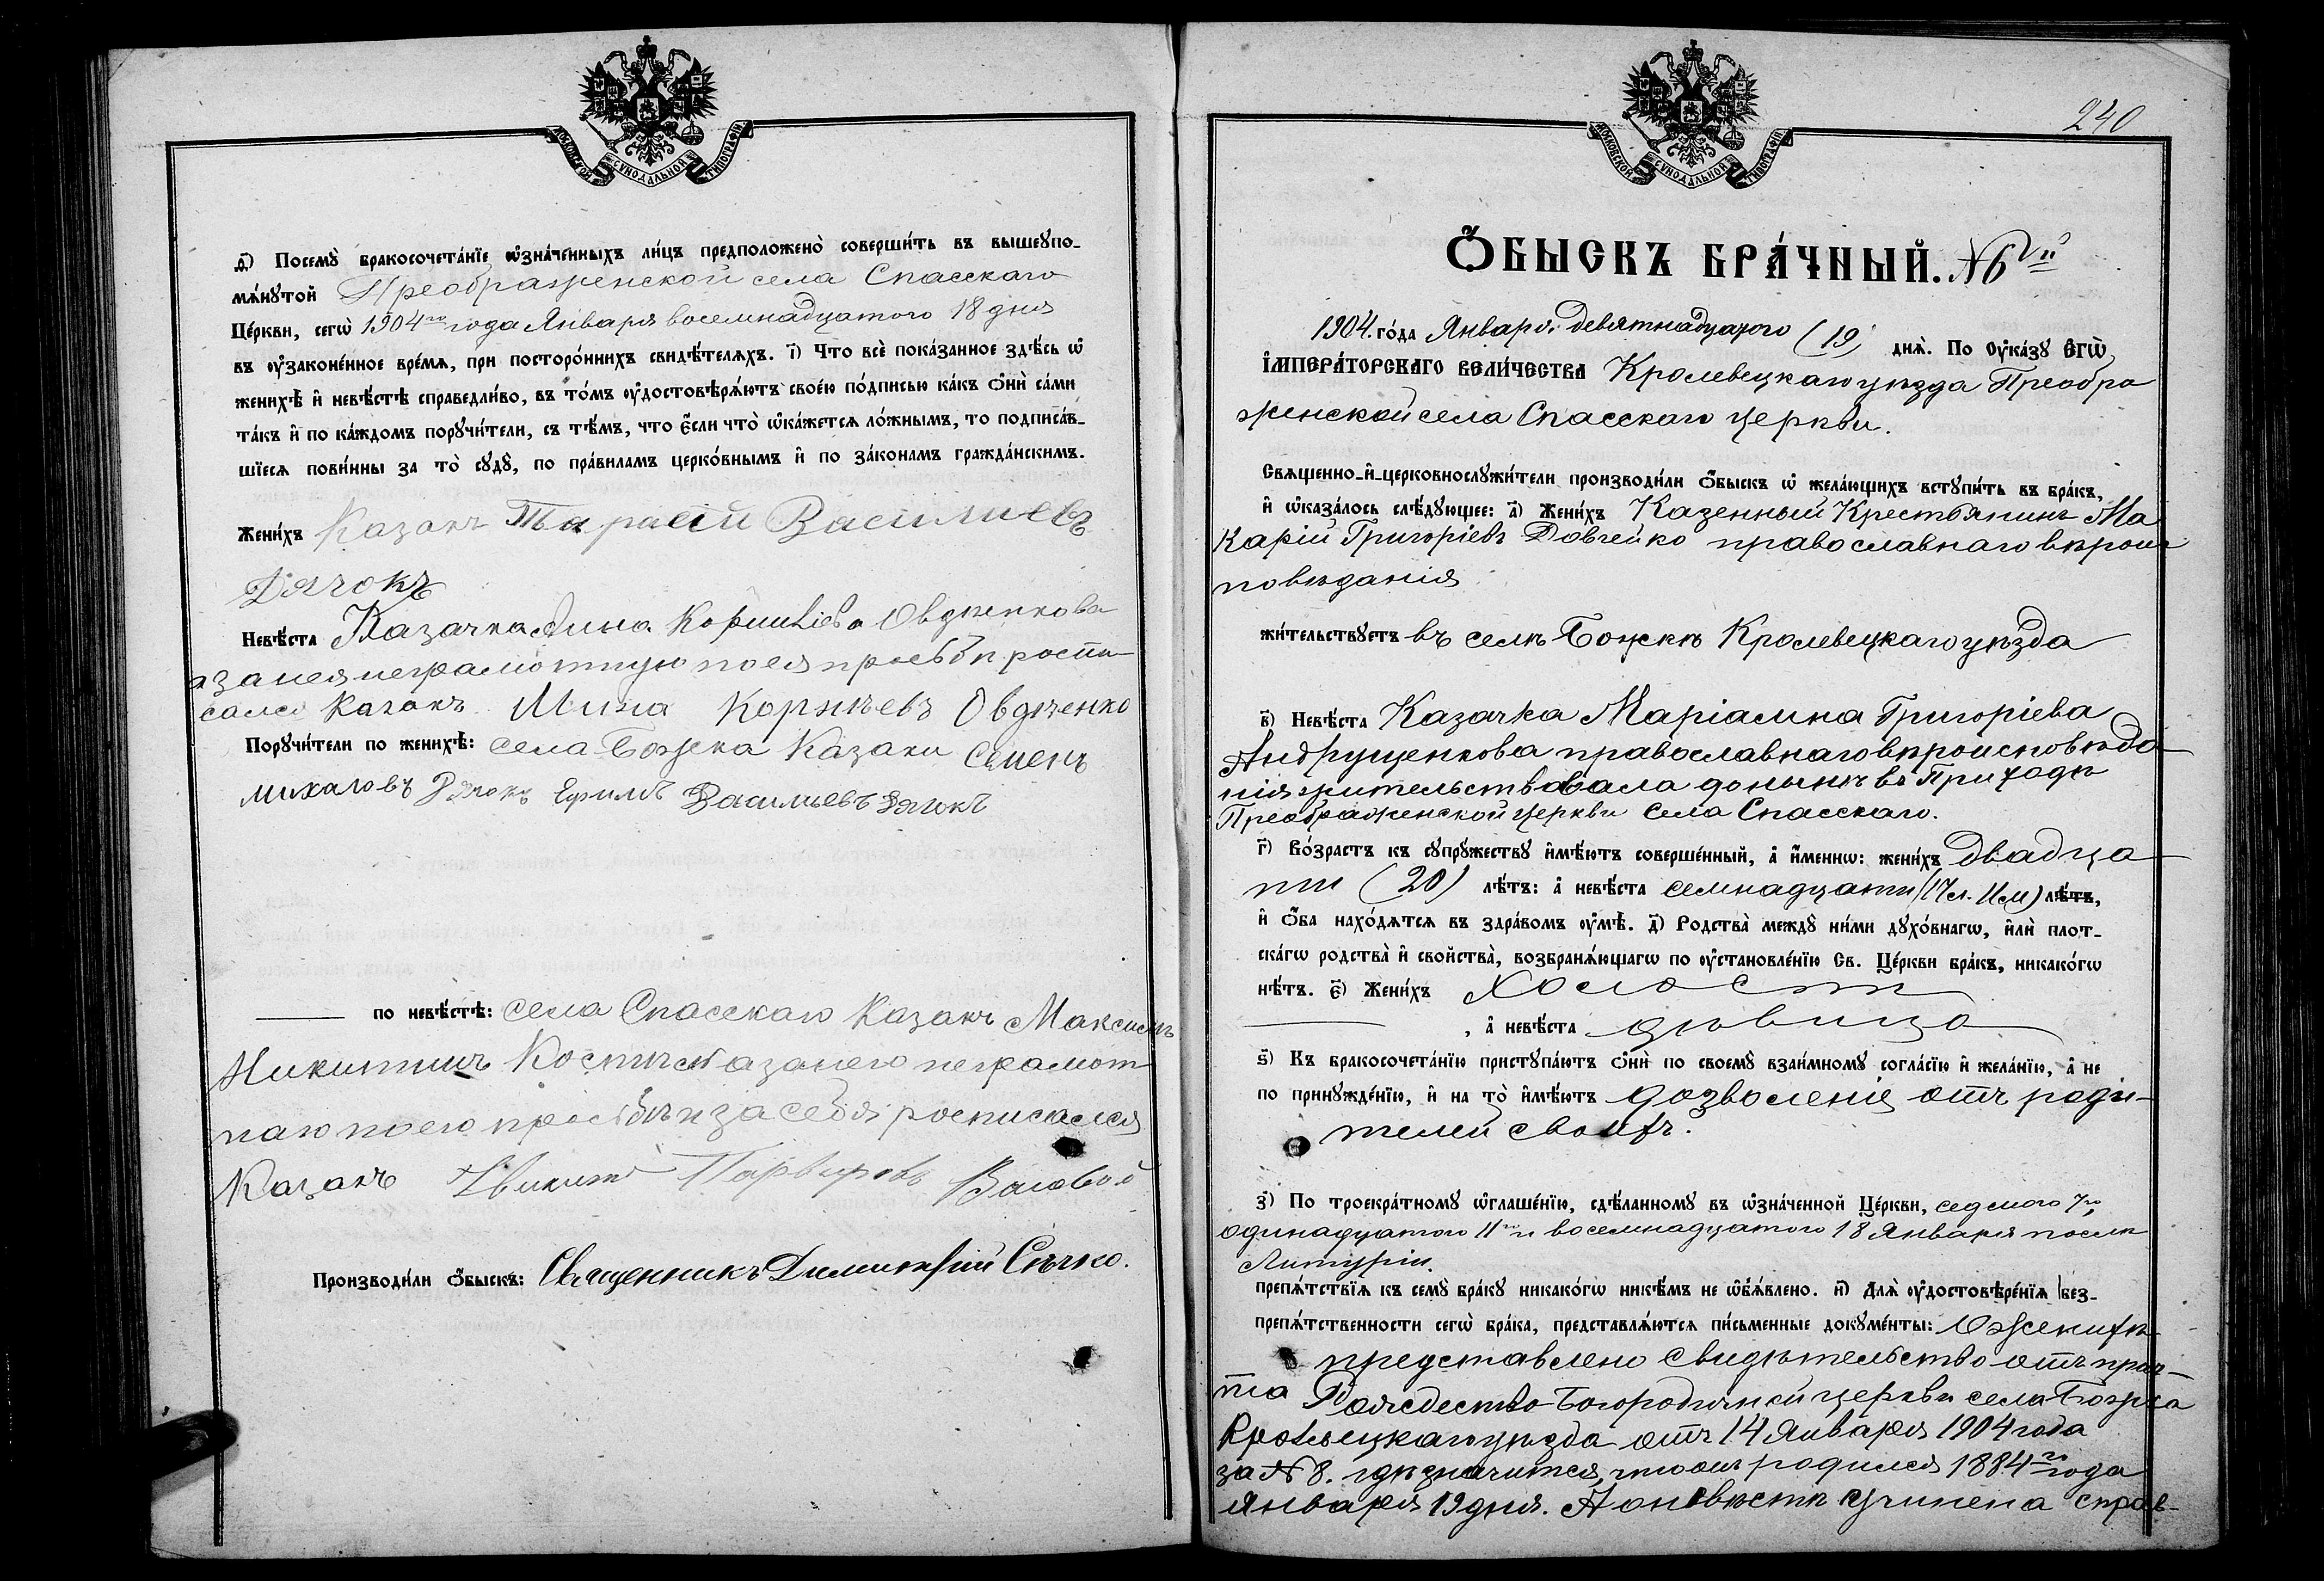 МОСКОВСКОЙ СѴНОДАЛЬНОЙ ТИПОГРАФІИ
д҃) Посемꙋ̀ бракосочета́нїе ѡ҆зна́ченныхъ ли́цъ предположено̀ соверши́ть въ вышеꙋпо-
мѧ́нꙋтой Преображенской села Спасскаго
Це́ркви, сегѡ̀ 1904го года Января восемнадцатого 18 дня
въ ᲂу҆законе́нное вре́мѧ, при посторо́ннихъ свидѣ́телѧхъ. і҃) Что всѐ пока́занное здѣ́сь ѡ҆
женихѣ̀ и҆ невѣ́стѣ справедли́во, въ то́мъ ᲂу҆достовѣрѧ́ютъ свое́ю по́дписью ка́къ ѻ҆нѝ са́ми
та́къ и҆ по ка́ждомъ порꙋчи́тели, съ тѣ́мъ, что є҆сли что̀ ѡ҆ка́жетсѧ ло́жнымъ, то подписа́в-
шїесѧ пови́нны за то̀ сꙋдꙋ̀, по пра́виламъ церко́внымъ и҆ по зако́намъ гражда́нскимъ.
Жени́хъ Казакъ Тарасій Василиевъ
Дячокъ
Невѣ́ста Казачка Анна Корниліева Овдѣенкова
а за нея неграмотную по ея просьбѣ роспи
сался казакъ Мина Корнѣевъ Овдѣенко
Порꙋчи́тели по женихѣ̀: села Божка Казаки Семенъ
михаловъ Дячокъ Ефимъ Васильевъ Дячокъ
по невѣ́стѣ: села Спасскаго Казакъ Максимъ
Никитинъ а за него неграмот
наго по его просьбѣ и за себя росписался
Казакъ
Производи́ли ѻ҆́быскъ: Священникъ Димитрій Сѣчко.
240
МОСКОВСКОЙ СѴНОДАЛЬНОЙ ТИПОГРАФІИ
Ѻ҆БЫСКЪ БРА́ЧНЫЙ. №6й
1904. го́да Января девятнадцатого (19) днѧ̀. По ᲂу҆ка́зꙋ Є҆ГѠ̀
І҆МПЕРА́ТОРСКАГО ВЕЛИ́ЧЕСТВА Кролевецкаго уѣзда Преобра
женской села Спасскаго церкви.
Свѧщенно-и҆-церковнослꙋжи́тели производи́ли ѻ҆́быскъ ѡ҆ жела́ющихъ встꙋпи́ть въ бра́къ,
и҆ ѡ҆каза́лось слѣ́дꙋющее: а҃) Жени́хъ Казенный Крестьянинъ Ма
карій Григоріевъ Довгейко православнаго вѣроис
повѣданія
жи́тельствꙋетъ въ селѣ Божкѣ Кролевецкаго уѣзда
в҃) Невѣ́ста Казачка Маріамна Григоріева
Андрущенкова православнаго вѣроисповѣда
нія жительствовала донынѣ въ Приходѣ
Преображенской церкви села Спасскаго.
г҃) Во́зрастъ къ сꙋпрꙋжествꙋ и҆мѣ́ютъ соверше́нный, а҆ и҆́меннѡ: жени́хъ двадца
ти (20) лѣ́тъ: а҆ невѣ́ста семнадцати (17 л. 11 м) лѣ́тъ,
и҆ ѻ҆́ба нахо́дѧтсѧ въ здра́вомъ ᲂу҆мѣ̀. д҃) Родства̀ междꙋ̀ ни́ми дꙋхо́внагѡ, и҆лѝ плот-
ска́гѡ родства̀ и҆ свойства̀, возбранѧ́ющагѡ по ᲂу҆становле́нїю Св. Це́ркви бра́къ, никако́гѡ
нѣ́тъ. є҃) Жени́хъ холостъ
, а҆ невѣ́ста дѣвица
ѕ҃) Къ бракосочета́нїю пристꙋпа́ютъ ѻ҆нѝ по своемꙋ̀ взаи́мномꙋ согла́сїю и҆ жела́нїю, а҆ не
по принꙋжде́нїю, и҆ на то̀ и҆мѣ́ютъ дозволеніе отъ роди-
телей своихъ.
з҃) По троекра́тномꙋ ѡ҆глаше́нїю, сдѣ́ланномꙋ въ ѡ҆зна́ченной Це́ркви, седмого 7го,
одинадцатого 11го и восемнадцатого 18 Января послѣ
Литургіи.
препѧ́тствїѧ къ семꙋ̀ бра́кꙋ никако́гѡ никѣ́мъ не ѡ҆б̾ѧ́влено. и҃) Длѧ̀ ᲂу҆достовѣре́нїѧ без-
препѧ́тственности сегѡ̀ бра́ка, представлѧ́ютсѧ пи́сьменные докꙋме́нты: О женихѣ
представлено свидѣтельство отъ прич-
та Рождество-Богородичной церкви села Божка
Кролевецкаго уѣзда отъ 14 Января 1904 года
за № 8. гдѣ значится, что онъ родился 1884го года
Января 19 дня. А о невѣстѣ учинена справ-